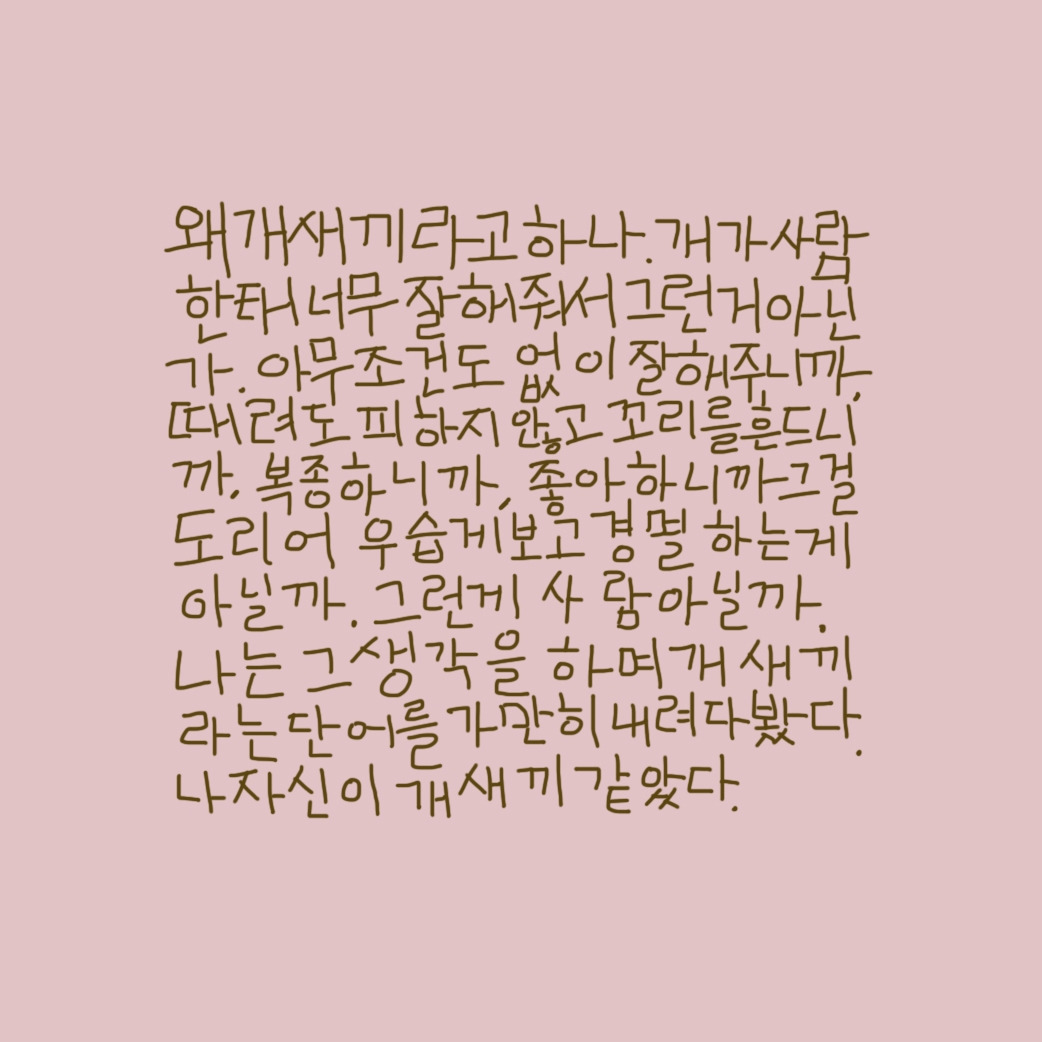 왜 개새끼라고 하나. 개가 사람
한태 너무 잘해줘서 그런거 아닌
가. 아무 조건도 없이 잘해주니까,
때려도 피하지 않고 꼬리를 흔드니
까, 복종하니까, 좋아하니까 그걸
도리어 우습게 보고 경멸하는게
아닐까. 그런게 사람 아닐까.
나는 그 생각을 하며 개새끼
라는 단어를 가만히 내려다봤다.
나 자신이 개새끼 같았다.